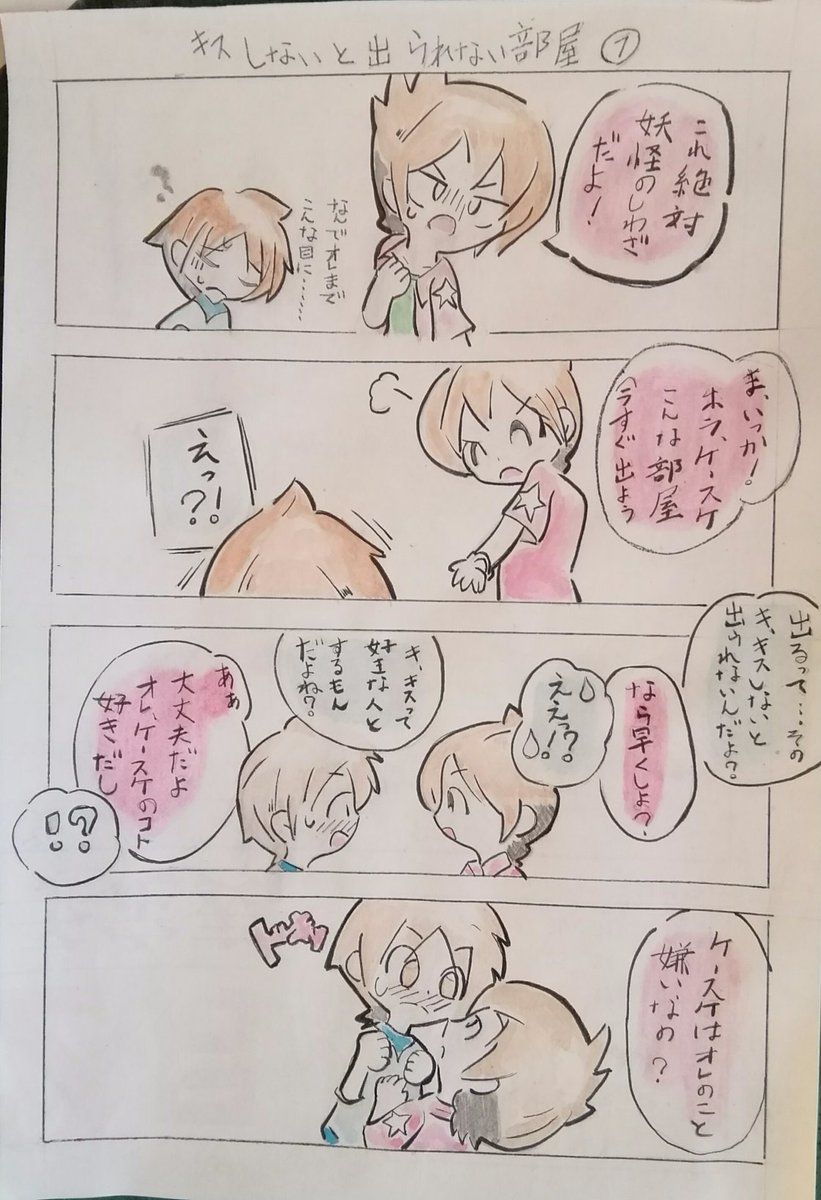 キスしないと出られない部屋①
これ絶対
妖怪のしわざ
だよ!
なんでオレまで
こんな目に………
?
ま、いっか!
ホラ、ケースケ
こんな部屋
今すぐ出よう
えっ?!
出るって…その
キ、キスしないと
出られないんだよ?
なら早くしよ?
ええっ!?
キ、キスって
好きな人と
するもん
だよね?
ああ
大丈夫だよ
オレ、ケースケのコト
好きだし
!?
ケースケはオレのこと
嫌いなの?
ドキ